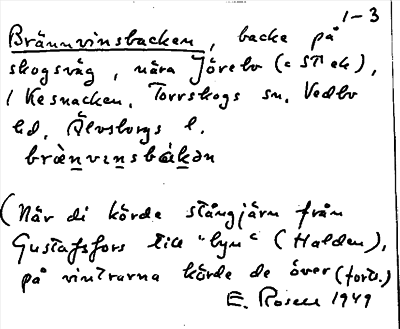 1-3
Brännvinsbacken, backe på
skogsväg, nära Jörebo (= st ek),
i Kesnacken, Torrskogs sn, Vedbo
hd, Älvsborgs l.
brànvınsbák̀ən
(När di körde stångjärn från
Gustafsfors till "byn" (Halden),
på vintrarna körde de över (forts.)
E. Rosell 1949